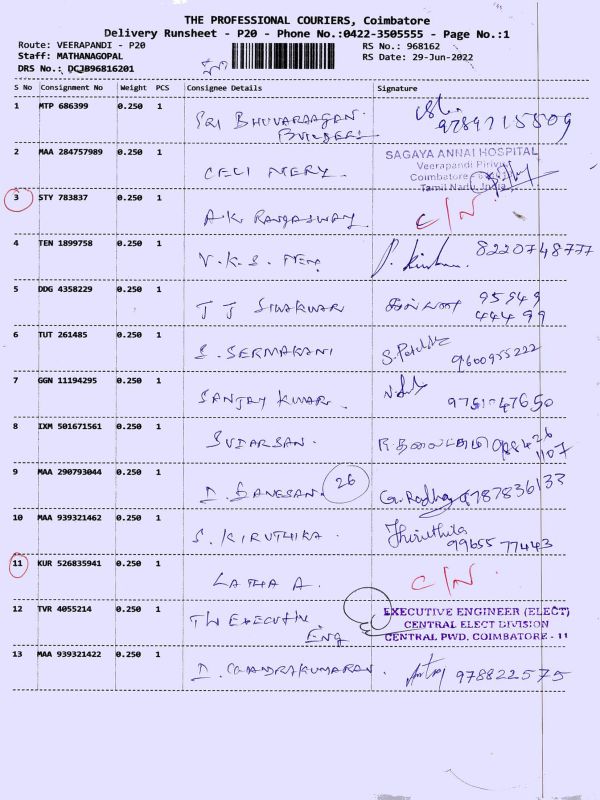 THE PROFESSIONAL COURIERS, Coimbatore
Delivery Runsheet - P20 - Phone No.:0422-3505555 - Page No.:1
Route: VEERAPANDI - P20
RS No.: 968162
Staff: MATHANAGOPAL
RS Date: 29-Jun-2022
DRS No.: DCJB96816201
S No Consignment No Weight PCS Consignee Details Signature
1 MTP 686399 0.250 1 SRI BHUVARAAGAN
BUILDERS
9789715509
2 MAA 284757989 0.250 1 CECI MERY
SAGAYA ANNAI HOSPITAL
Veerapandi Pirivu
Coimbatore
Tamil Nadu, India
3 STY 783837 0.250 1 A.K. RANGASWAY C/N
4 TEN 1899758 0.250 1 V.K.S. 8220748777
5 DDG 4358229 0.250 1 T J SIVAKUMAR 95949
44499
6 TUT 261485 0.250 1 S. SERMAKANI 9600955222
7 GGN 11194295 0.250 1 SANJAY KUMAR 9751047650
8 IXM 501671561 0.250 1 SUDARSAN
9 MAA 290793044 0.250 1 D. GANESAN 26 G. Radha 8787836133
10 MAA 939321462 0.250 1 S. KIRUTHIKA 
99655 77443
11 KUR 526835941 0.250 1 LATHA A. C/N
12 TVR 4055214 0.250 1 THE EXECUTIVE
Eng
EXECUTIVE ENGINEER (ELECT)
CENTRAL ELECT DIVISION
CENTRAL PWD, COIMBATORE - 11
13 MAA 939321422 0.250 1 D. CHANDRAKUMARAN 978822575